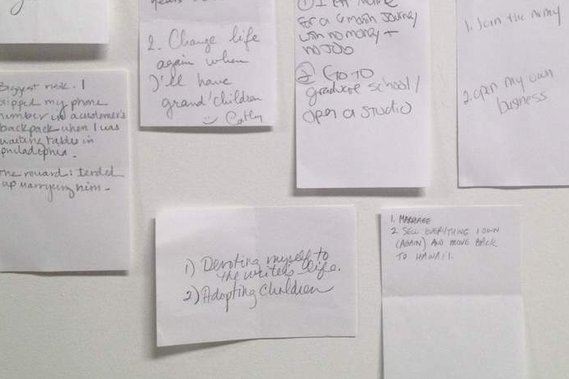 2. Change life
again when
I'll have
grand'children
Cathy
for a 6 month journey
with no money +
no JOB
② GO TO
graduate school/
open a studio
1. Join the Army
2. open my own
business
Biggest risk. I
slipped my phone
number in a customer's
backpack when I was
waiting tables in
philadelphia.
The reward: I ended
up marrying him.
1) Devoting myself to
the writer's life.
2) Adopting Children
1. MARRIAGE
2. SELL EVERYTHING I OWN
(AGAIN) AND MOVE BACK
TO HAWAII.